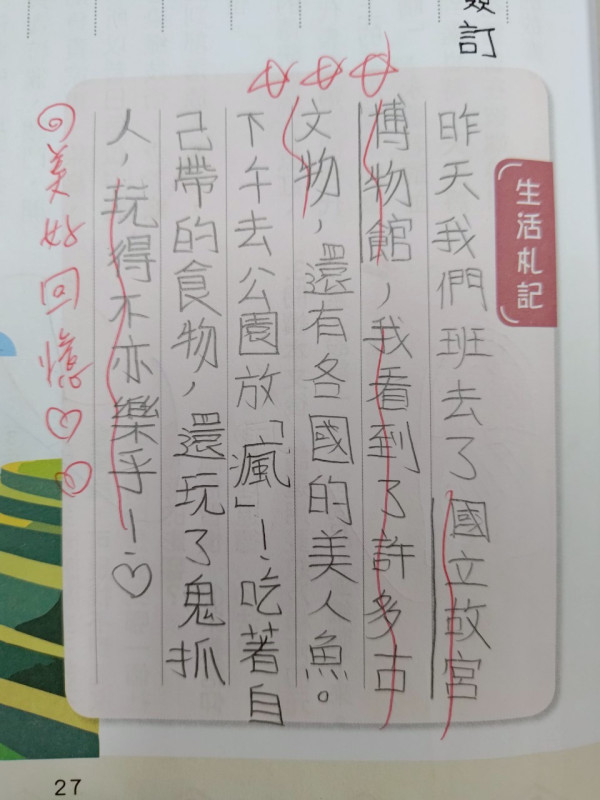 訂
生活札記
昨天我們班去了國立故宮
博物館，我看到了許多古
文物，還有各國的美人魚。
下午去公園放「瘋」！吃著自
己帶的食物，還玩了鬼抓
人，玩得不亦樂乎！♡
美好回憶♡♡
27